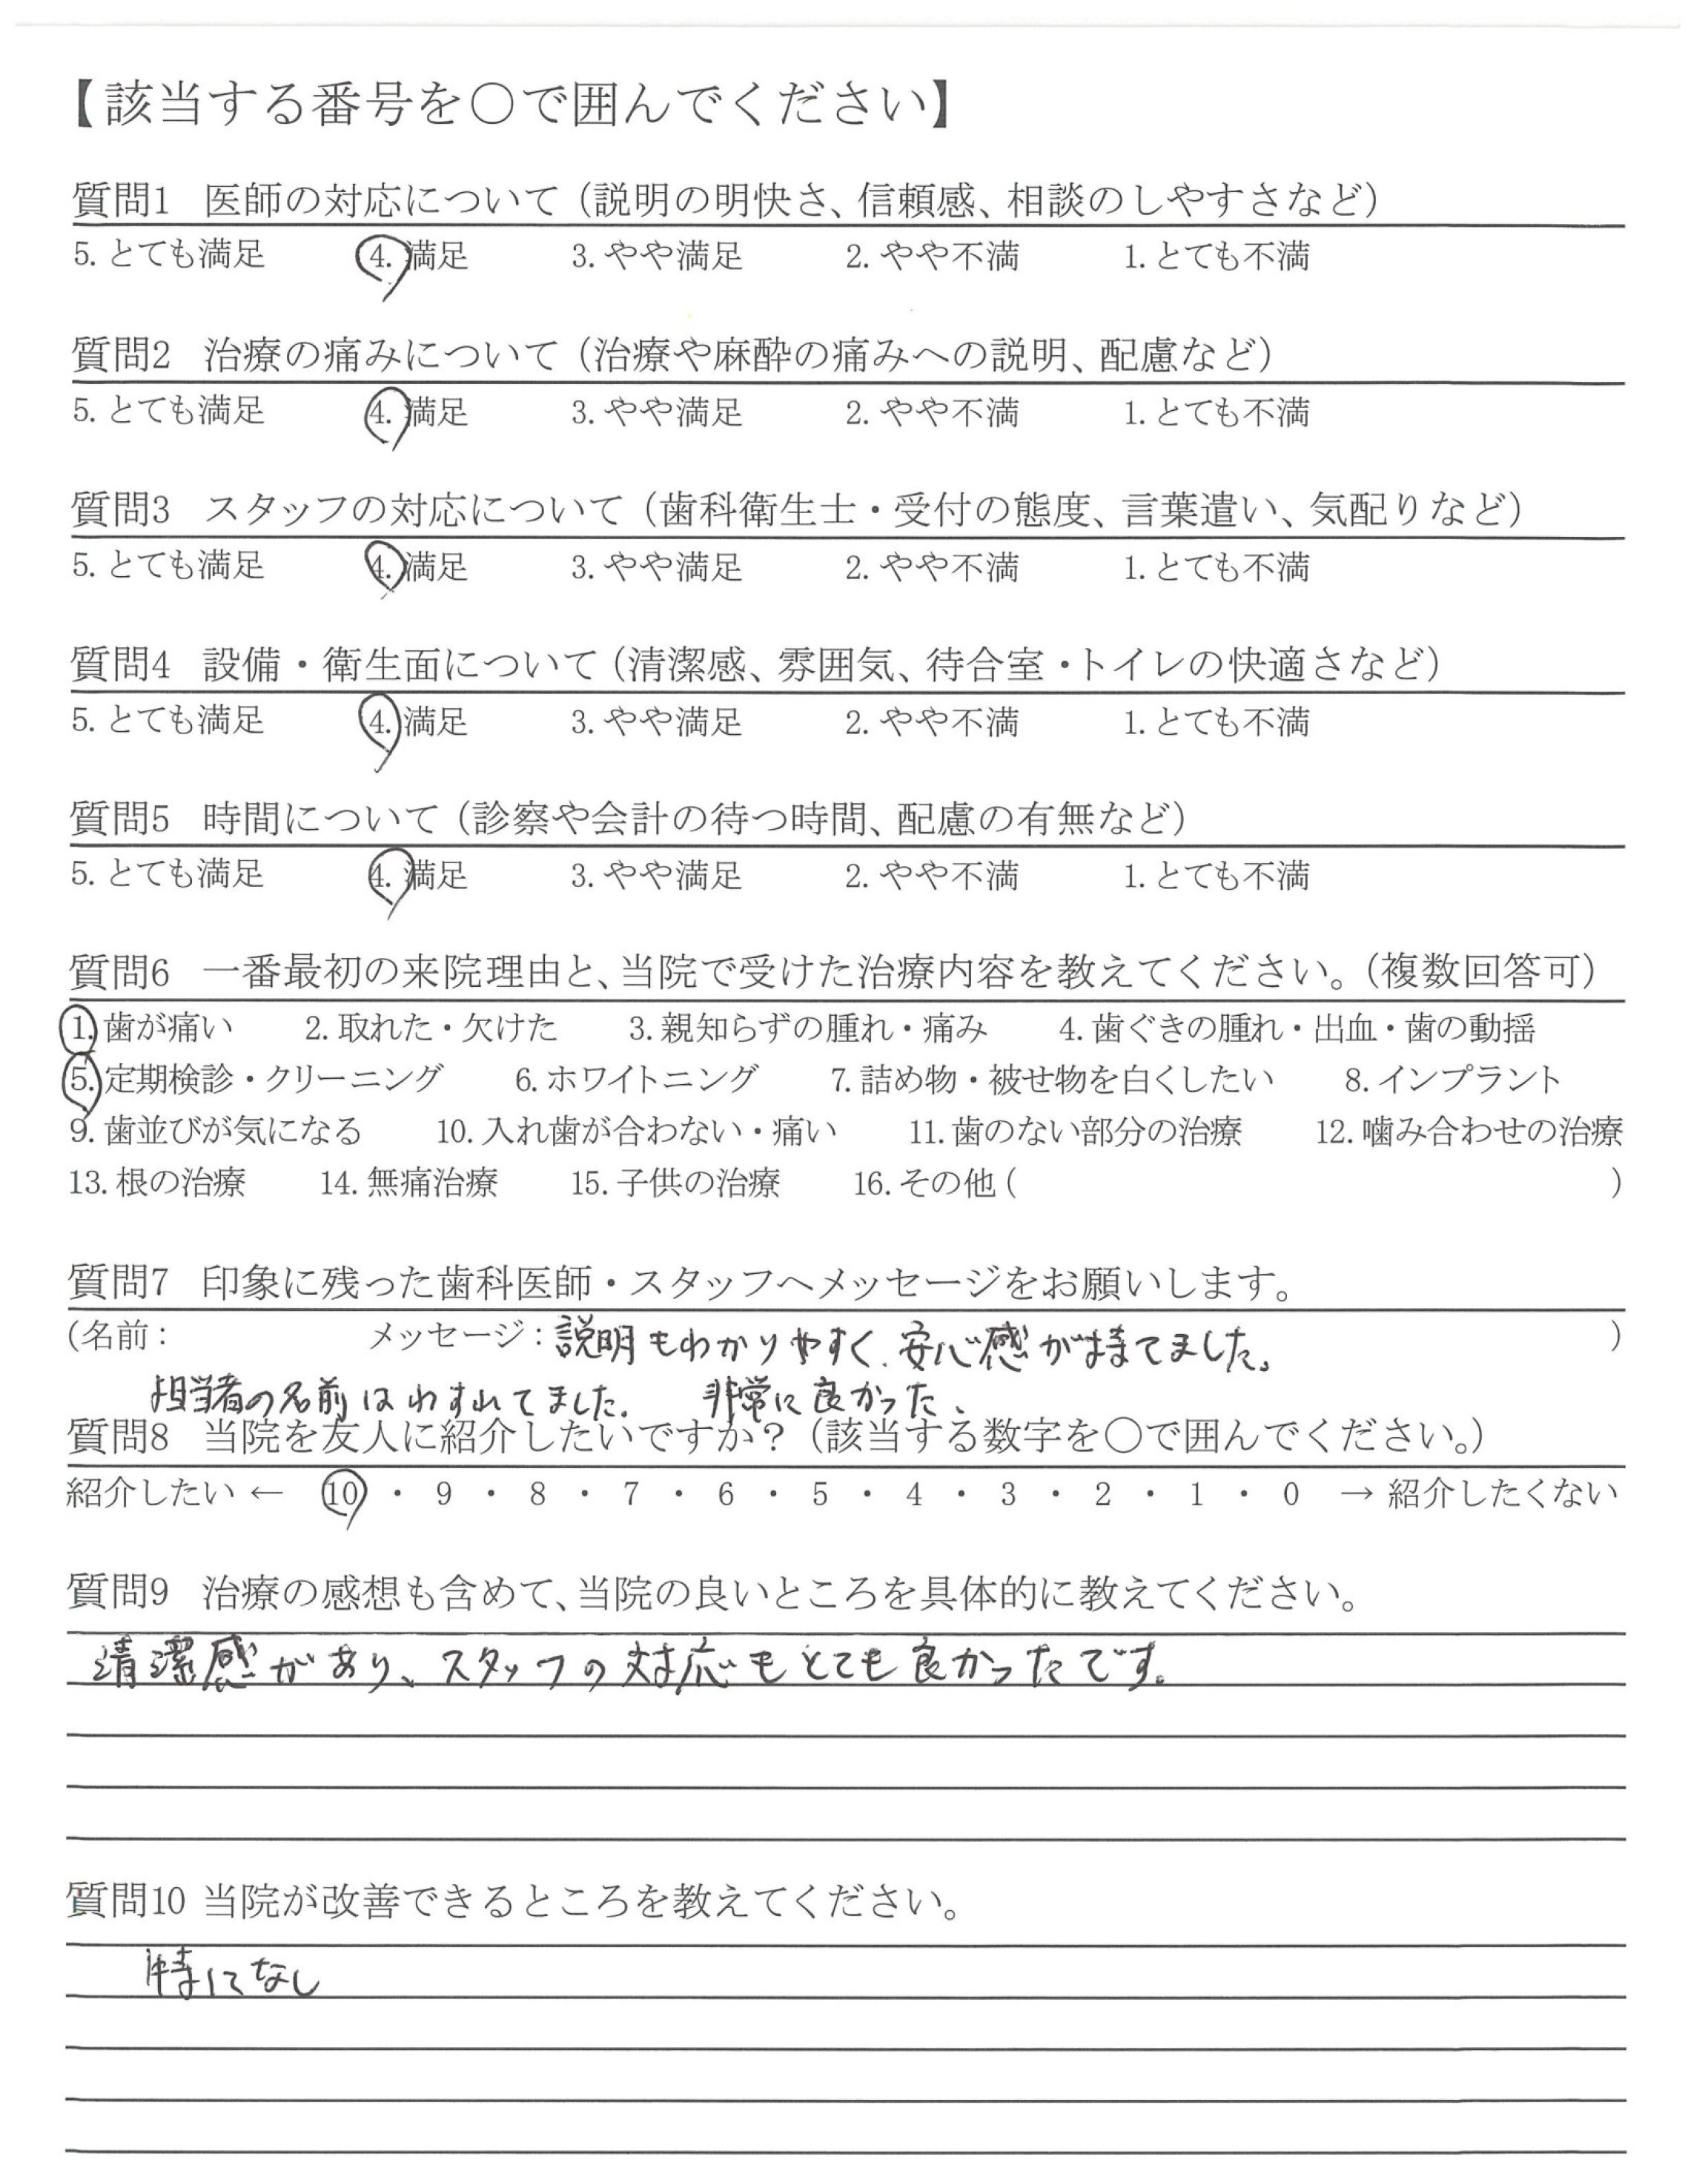 【該当する番号を〇で囲んでください】
質問1 医師の対応について（説明の明快さ、信頼感、相談のしやすさなど）
5. とても満足 4. 満足 3. やや満足 2. やや不満 1. とても不満
質問2 治療の痛みについて（治療や麻酔の痛みへの説明、配慮など）
5. とても満足 4. 満足 3. やや満足 2. やや不満 1. とても不満
質問3 スタッフの対応について（歯科衛生士・受付の態度、言葉遣い、気配りなど）
5. とても満足 4. 満足 3. やや満足 2. やや不満 1. とても不満
質問4 設備・衛生面について（清潔感、雰囲気、待合室・トイレの快適さなど）
5. とても満足 4. 満足 3. やや満足 2. やや不満 1. とても不満
質問5 時間について（診察や会計の待つ時間、配慮の有無など）
5. とても満足 4. 満足 3. やや満足 2. やや不満 1. とても不満
質問6 一番最初の来院理由と、当院で受けた治療内容を教えてください。（複数回答可）
1. 歯が痛い 2. 取れた・欠けた 3. 親知らずの腫れ・痛み 4. 歯ぐきの腫れ・出血・歯の動揺
5. 定期検診・クリーニング 6. ホワイトニング 7. 詰め物・被せ物を白くしたい 8. インプラント
9. 歯並びが気になる 10. 入れ歯が合わない・痛い 11. 歯のない部分の治療 12. 噛み合わせの治療
13. 根の治療 14. 無痛治療 15. 子供の治療 16. その他（ ）
質問7 印象に残った歯科医師・スタッフへメッセージをお願いします。
（名前： メッセージ：説明もわかりやすく、安心感が持てました。）
担当者の名前はわすれてました。 非常に良かった、
質問8 当院を友人に紹介したいですか？（該当する数字を〇で囲んでください。）
紹介したい ← 10 ・ 9 ・ 8 ・ 7 ・ 6 ・ 5 ・ 4 ・ 3 ・ 2 ・ 1 ・ 0 → 紹介したくない
質問9 治療の感想も含めて、当院の良いところを具体的に教えてください。
清潔感があり、スタッフの対応もとても良かったです。
質問10 当院が改善できるところを教えてください。
特になし